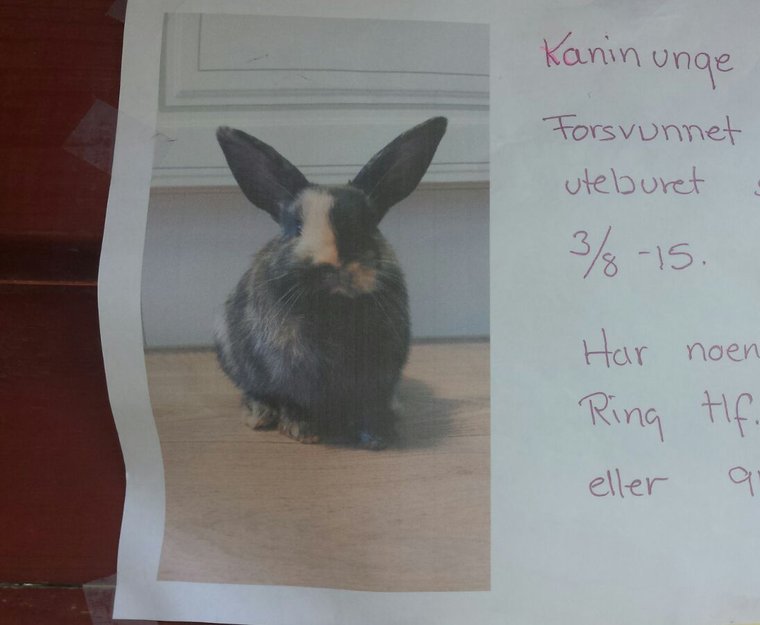 Kanin unge
Forsvunnet
uteburet
3/8 -15.
Har noen
Ring tlf.
eller